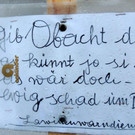 gib Obacht d
as künnt jo si
wär doch
ewig schad üm D
Lawinenwarndien